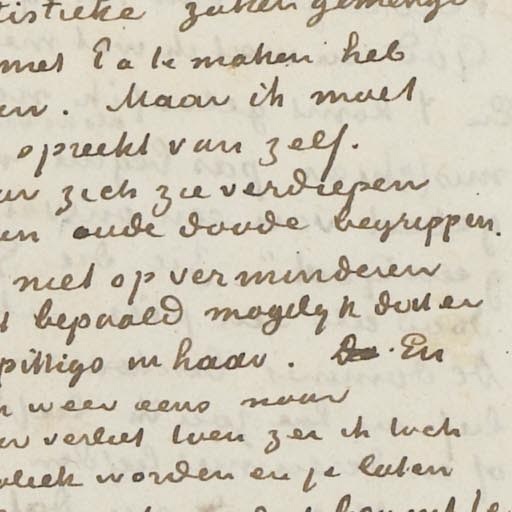 zaken gemengd
met Pa te maken heb
en. Maar ik moet
spreekt van zelf.
zich zie verdiepen
en oude doode begrippen.
niet op verminderen
bepaald mogelyk dat er
pittigs in haar. En
weer eens naar
verliet toen zei ik toch
worden en je laten